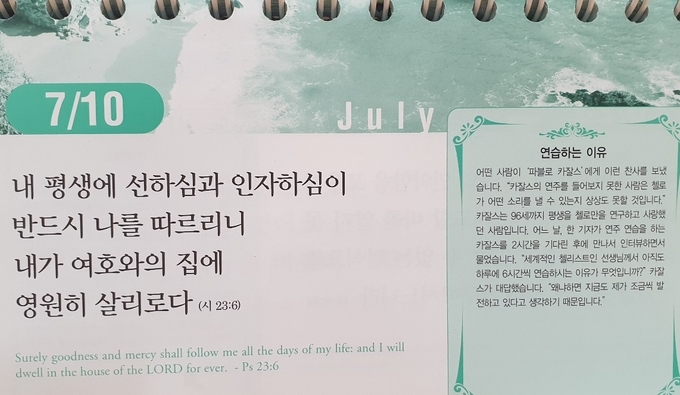 7/10
July
내 평생에 선하심과 인자하심이
반드시 나를 따르리니
내가 여호와의 집에
영원히 살리로다 (시 23:6)
Surely goodness and mercy shall follow me all the days of my life: and I will
dwell in the house of the LORD for ever. - Ps 23:6
연습하는 이유
어떤 사람이 '파블로 카잘스'에게 이런 찬사를 보냈
습니다. "카잘스의 연주를 들어보지 못한 사람은 첼로
가 어떤 소리를 낼 수 있는지 상상도 못할 것입니다."
카잘스는 96세까지 평생을 첼로만을 연구하고 사랑했
던 사람입니다. 어느 날, 한 기자가 연주 연습을 하는
카잘스를 2시간을 기다린 후에 만나서 인터뷰하면서
물었습니다. "세계적인 첼리스트인 선생님께서 아직도
하루에 6시간씩 연습하시는 이유가 무엇입니까?" 카잘
스가 대답했습니다. "왜냐하면 지금도 제가 조금씩 발
전하고 있다고 생각하기 때문입니다."